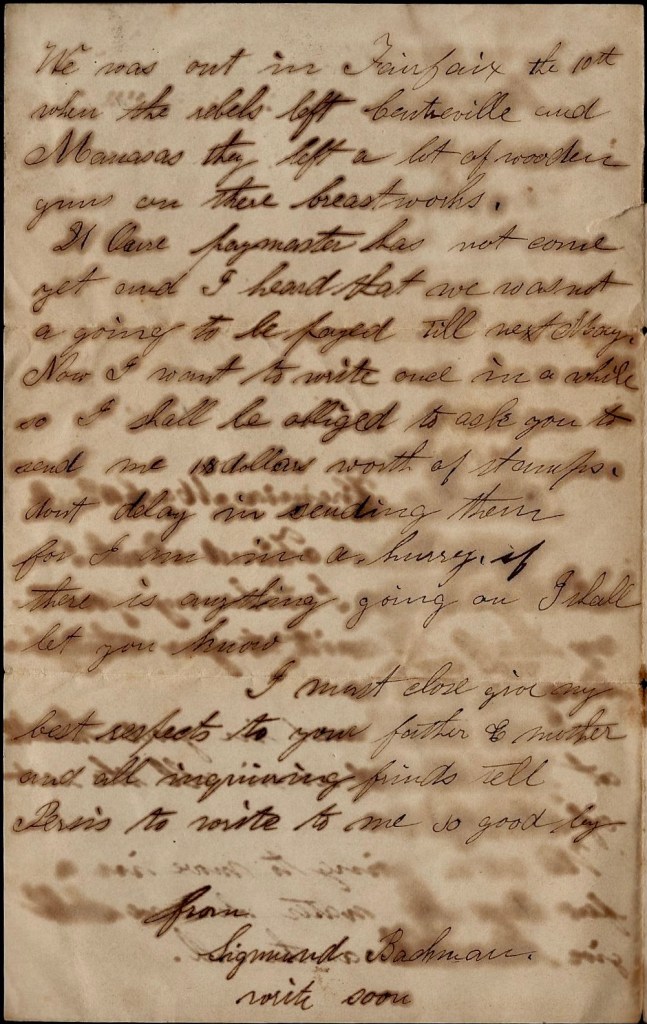 We was out in Fairfaix the 10th
when the rebels left Centreville and
Manasas they left a lot of wooden
guns on there breastworks.
Oure paymaster has not come
yet and I heard that we was not
a going to be payed till next May.
Now I want to write once in a while
so I shall be obliged to ask you to
send me dollars worth of stamps.
dont delay in sending them
for I am in a hurry. if
there is anything going on I shall
let you know
I must close give my
best respects to your father & mother
and all inquiring frinds tell
to write to me so good by
from
Sigmund Bachman.
write soon